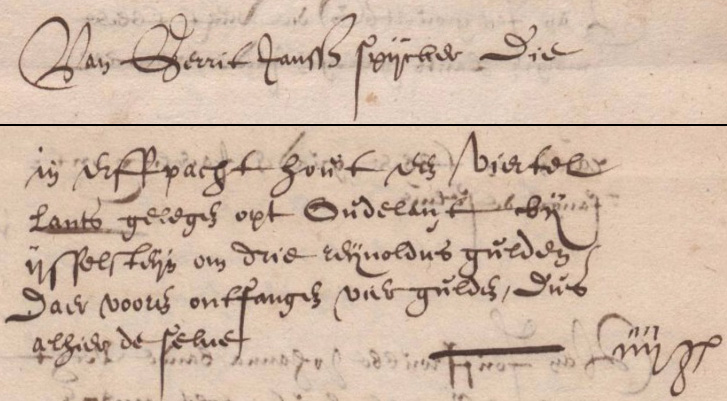 Van Gerrit Janssz spijcker Die
in erffpacht hout een viertel
Lants gelegen opt Oudelant bij
ijsselsteijn om drie reijnoldus gulden
Daer vooren ontfangen vier gulden / Dus
alhier de selve iiij g